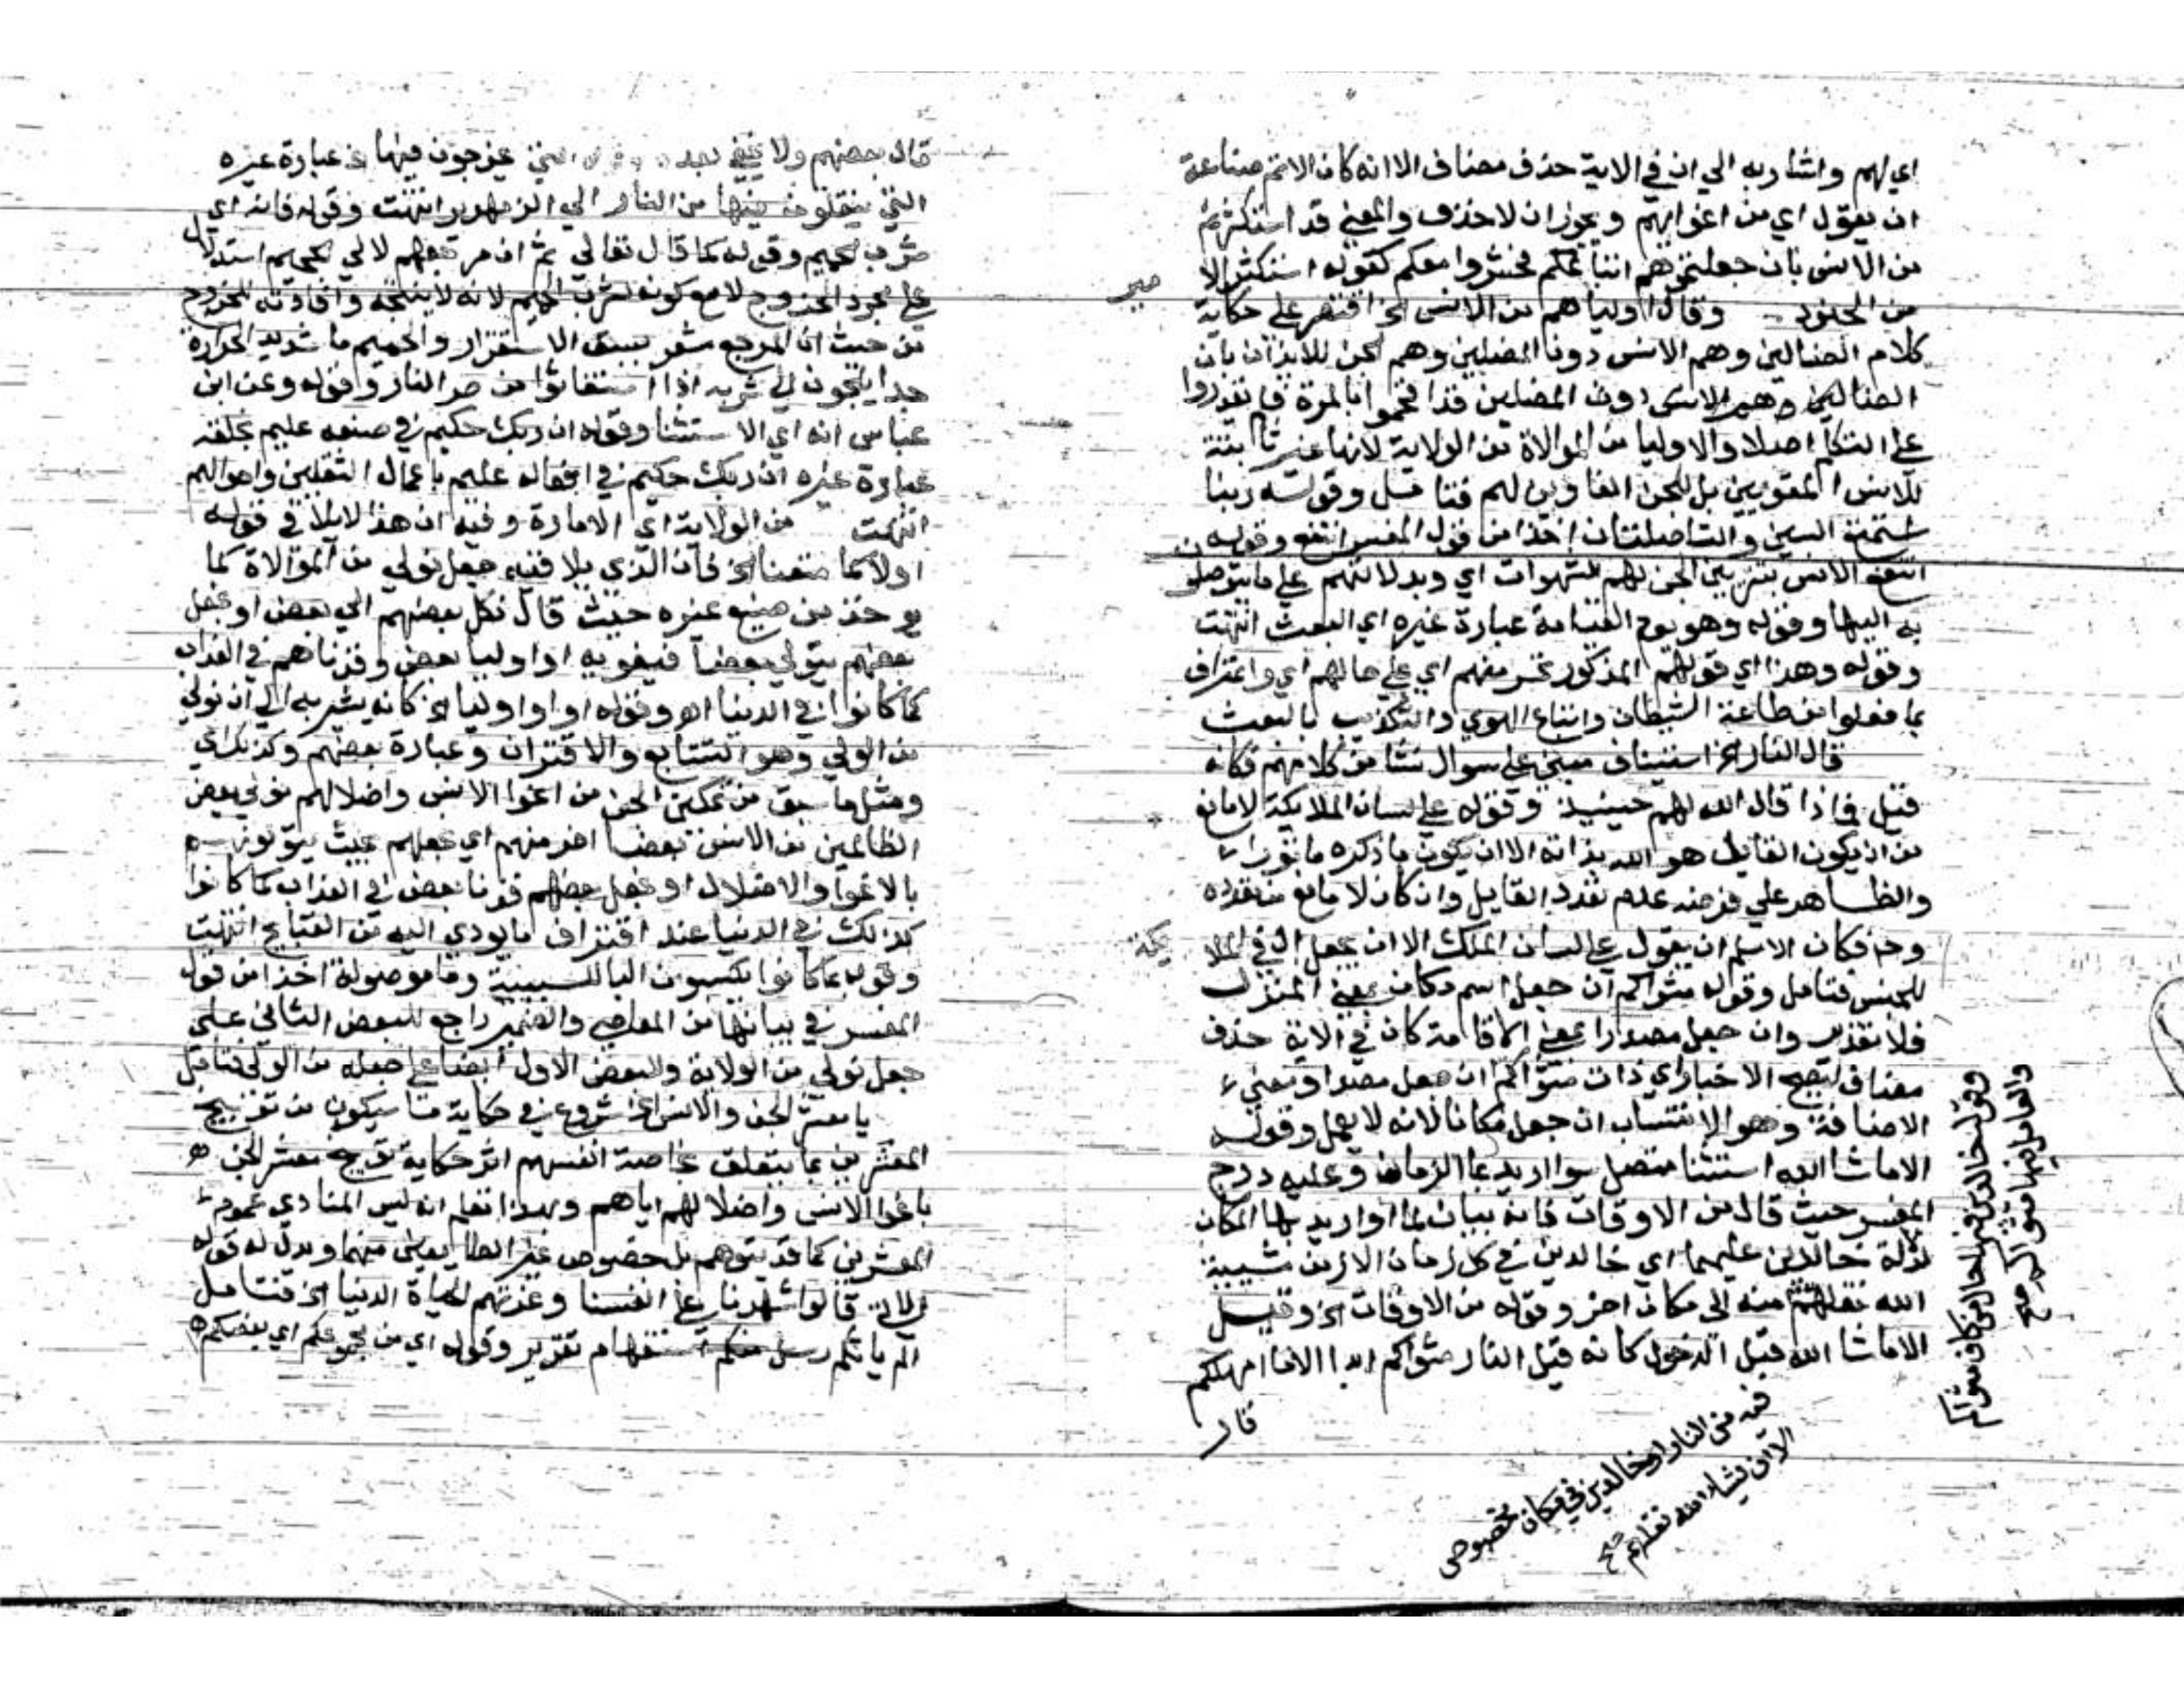 اي لهم واشار به الي ان في الاية حذف مضاف الا انه كان الاتم صناعة
ان يقول اي من اغوايهم ويجوز ان لا حذف والمعني قد استكثرتم
من الانس بان جعلتموهم اتباعكم فحشروا معكم كقوله استكثر الا
مير
من الجنود وقال اولياهم من الانس الخ اقتصر علي حكاية
كلام الضالين وهم الانس دون المضلين وهم الجن للايذان بان
الضالين وهم الانس دون المضلين قد افحموا بالمرة فلم يقدروا
علي التكلم اصلا والاوليا من الموالاة من الولاية لانها غير ثابتة
للانس المغويين بل للجن الغاوين لهم فتامل وقوله ربنا
استمتع السين والتا صلتان اخذا من قول المفسر انتفع وقوله
انتفع الانس بتزيين الجن لهم الشهوات اي وبدلالتهم علي ما يتوصلون
به اليها وقوله وهو يوم القيامة عبارة غيره اي البعث انتهت
وقوله وهذا اي قولهم المذكور تحسر منهم اي علي حالهم اي واعتراف
بما فعلوا من طاعة الشيطان واتباع الهوي والتكذيب بالبعث
قال النار الخ استيناف مبني علي سوال نشا من كلامهم فكانه
قيل فماذا قال الله لهم حينيذ وقوله علي لسان الملايكة لا مانع
من ان يكون القايل هو الله بذاته الا ان يكون ما ذكره ماثورا
والظاهر علي فرضه عدم تعدد القايل وان كان لا مانع من تعدده
وح فكان الاسلم ان يقول علي لسان الملك الا ان يجعل ال في الملا
يكة
للجنس فتامل وقوله مثواكم ان جعل اسم مكان بمعني المنزل
فلا تقدير وان جعل مصدرا بمعني الاقامة كان في الاية حذف
مضاف ليصح الاخبار اي ذات مثواكم ان جعل مصدرا ومعني
الاضافة وهو الانتساب ان جعل مكانا لانه لا يعمل وقوله
الا ما شا الله استثنا متصل سوا اريد بما الزمان وعليه درج
المفسر حيث قال من الاوقات فانه بيان لما او اريد بها المكان
لدلة خالدين عليهما اي خالدين في كل زمان الا زمن مشيية
الله نقلهم منه الي مكان اخر وقوله من الاوقات الخ وقيل
الا ما شا الله قبل الدخول كانه قيل النار مثواكم ابدا الا ما امهلكم
قال
وقوله خالدين فيها حال من كاف مثواكم
والعامل فيها مثواكم صح
فيه من النار او خالدين في مكان مخصوص
الا ان يشاء الله نقلهم صح
قال بعضهم ولا يخفي بعده يخرجون فيها الخ عبارة غيره
التي ينقلون فيها من النار الي الزمهرير انتهت وقوله فانه اي
شرب الحميم وقوله كما قال تعالي ثم ان مرجعهم لالي الجحيم استدلال
علي مجرد الخروج لا مع كونه لشرب الحميم لانه لا ينتجه وافادته للخروج
من حيث ان المرجع مشعر بسبق الاستقرار والحميم ما شديد الحرارة
جدا يلجون الي شربه اذا استغاثوا من حر النار وقوله وعن ابن
عباس انه اي الاستثنا وقوله ان ربك حكيم في صنعه عليم بخلقه
عبارة غيره ان ربك حكيم في افعاله عليم باعمال الثقلين واحوالهم
انتهت من الولاية اي الامارة وفيه ان هذا لا يلايم قوله
اولا كما متعنا الخ فان الذي يلاقيه جعل نولي من الموالاة كما
يوخذ من صنيع غيره حيث قال نكل بعضهم الي بعض او نجعل
بعضهم يتولي بعضا فيغويه او اوليا بعض وقرناهم في العذاب
كما كانوا في الدنيا اهـ وقوله او اوليا الخ كانه يشير به الي ان نولي
من الولي وهو التتابع والاقتران وعبارة بعضهم وكذلك اي
ومثل ما سبق من تمكين الجن من اغوا الانس واضلالهم نولي بعض
الظالمين من الانس بعضا اخر منهم اي نجعلهم بحيث يتولونهم
بالاغوا والاضلال او نجعل بعضهم قرنا بعض في العذاب كما كانوا
كذلك في الدنيا عند اقتراف ما يودي اليه من القبايح انتهت
وقوله بما كانوا يكسبون البا للسببية وما موصولة اخذا من قول
المفسر في بيانها من المعاصي والضمير راجع للبعض الثاني علي
جعل نولي من الولاية والبعض الاول ايضا علي جعله من الولي فتامل
يا معشر الجن والانس الخ شروع في حكاية ما سيكون من توبيخ
المعشرين بما يتعلق بخاصة انفسهم اثر حكاية توبيخ معشر الجن
باغوا الانس واضلالهم اياهم وبهذا تعلم انه ليس المنادي عموم
المعشرين كما قد يتوهم بل خصوص غير منهما ويدل له قوله
الاتي قالوا شهدنا علي انفسنا وغرتهم الحياة الدنيا الخ فتامل
الم ياتكم رسل منكم استفهام تقرير وقوله اي من مجموعكم اي بعضكم